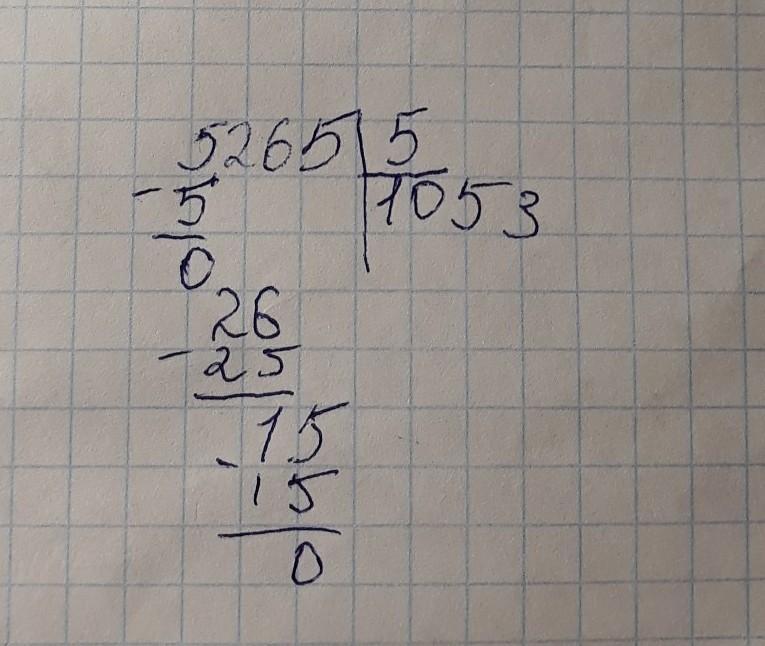 5265 5
- 5 1053
0
26
- 25
15
- 15
0